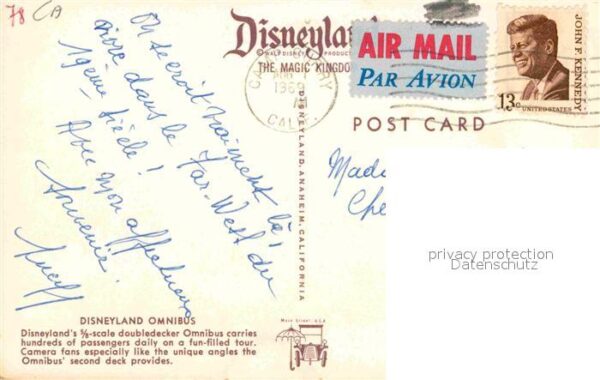 78 CA
Disneyland
© WALT DISNEY PRODUC
THE MAGIC KINGDOM
AIR MAIL
PAR AVION
JOHN F. KENNEDY
13c
UNITED STATES
1969
CALIF
POST CARD
On se croit vraiment là,
vivre dans le Far-West du
19ème siècle!
Avec mon affectueux
souvenir.
DISNEYLAND, ANAHEIM, CALIFORNIA
Mada
Che
privacy protection
Datenschutz
DISNEYLAND OMNIBUS
Disneyland's ⅝-scale doubledecker Omnibus carries
hundreds of passengers daily on a fun-filled tour.
Camera fans especially like the unique angles the
Omnibus' second deck provides.
Main Street, U.S.A.